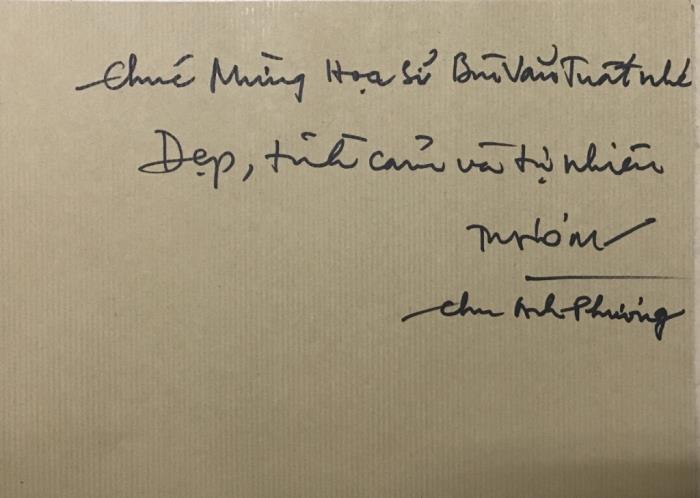 Chúc Mừng Họa sĩ Bùi Văn Tuất nhé
Đẹp, tình cảm và tự nhiên
Chu Anh Phương